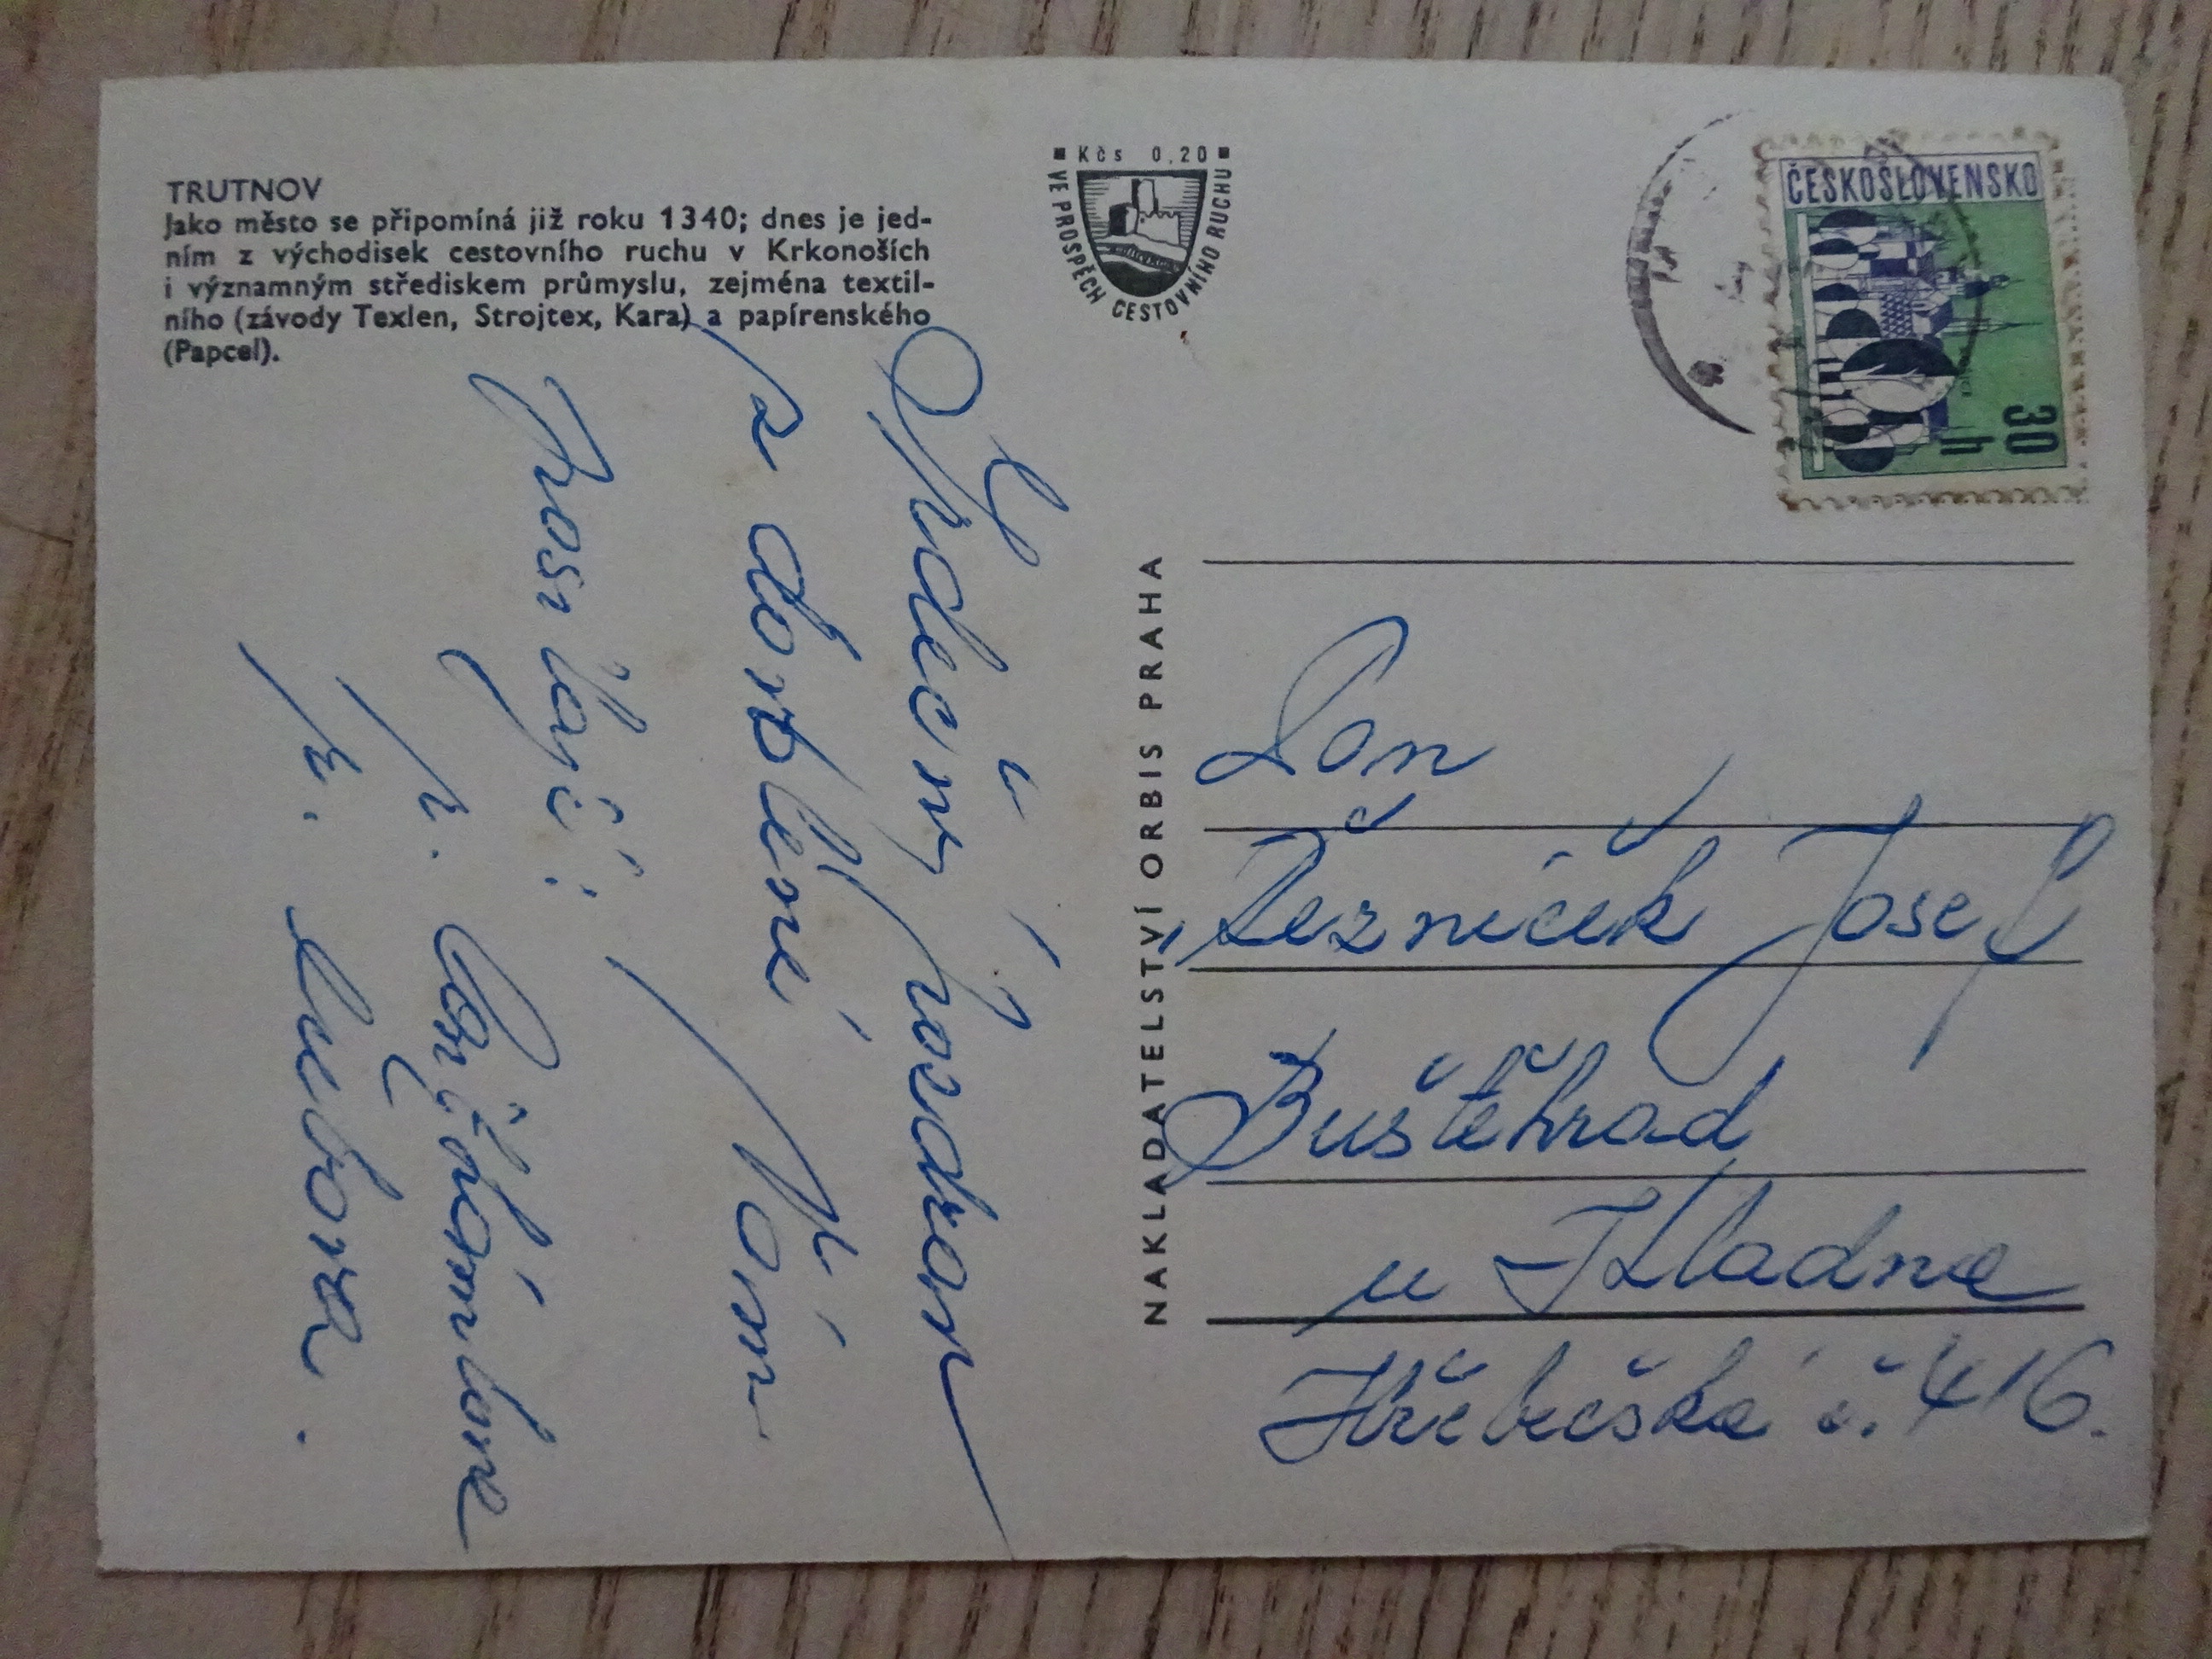 TRUTNOV
Jako město se připomíná již roku 1340; dnes je jed-
ním z východisek cestovního ruchu v Krkonoších
i významným střediskem průmyslu, zejména textil-
ního (závody Texlen, Strojtex, Kara) a papírenského
(Papcel).
Kčs 0,20
VE PROSPĚCH CESTOVNÍHO RUCHU
ČESKOSLOVENSKO
30
h
NAKLADATELSTVÍ ORBIS PRAHA
Srdečný pozdrav
z dovolené Vám
p.
p.
Pan
Řezníček Josef
Buštěhrad
u Kladna
Hřebečská č. 416.